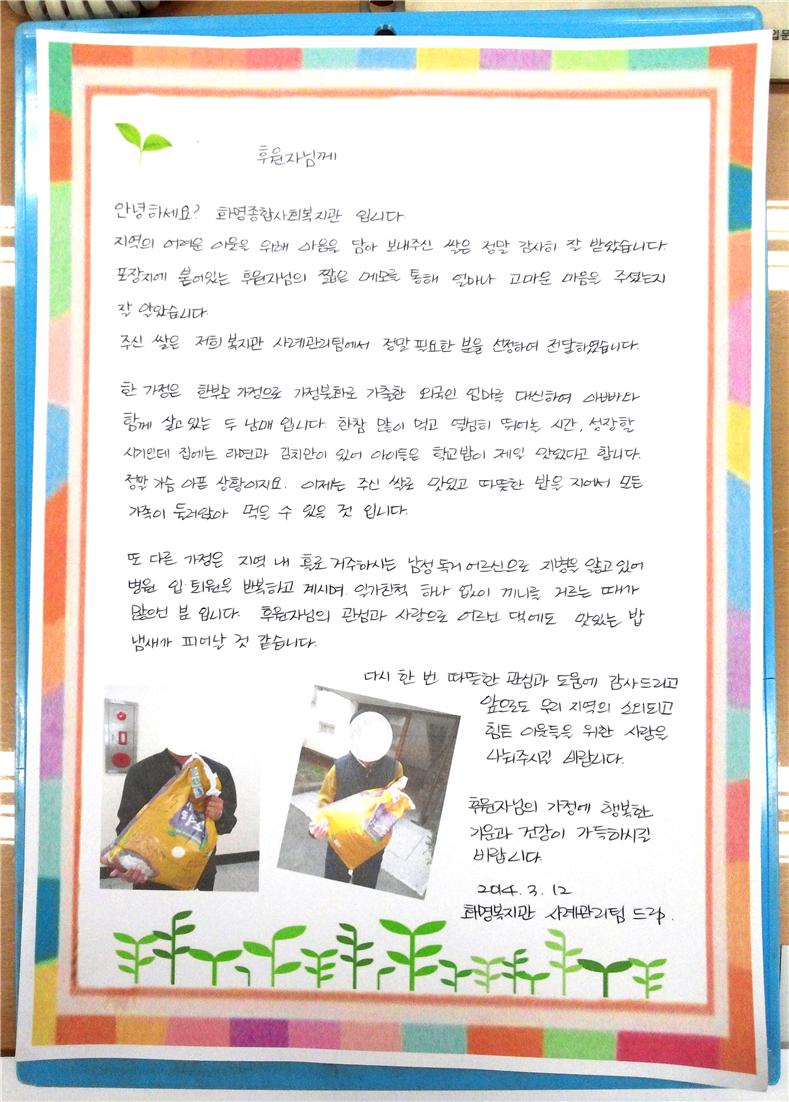 후원자님께
안녕하세요? 화명종합사회복지관 입니다.
지역의 어려운 이웃을 위해 마음을 담아 보내주신 쌀은 정말 감사히 잘 받았습니다
포장지에 붙어있는 후원자님의 짧은 메모를 통해 얼마나 고마운 마음을 주셨는지
잘 알았습니다
주신 쌀은 저희 복지관 사례관리팀에서 정말 필요한 분을 선정하여 전달하였습니다.
한 가정은 한부모 가정으로 가정불화로 가출한 외국인 엄마를 대신하여 아빠와
함께 살고 있는 두 남매 입니다. 한참 많이 먹고 열심히 뛰어놀 시간, 성장할
시기인데 집에는 라면과 김치만이 있어 아이들은 학교밥이 제일 맛있다고 합니다.
정말 가슴 아픈 상황이지요. 이제는 주신 쌀로 맛있고 따뜻한 밥을 지어서 모든
가족이 둘러앉아 먹을 수 있을 것 입니다.
또 다른 가정은 지역 내 홀로 거주하시는 남성 독거 어르신으로 지병을 앓고 있어
병원 입·퇴원을 반복하고 계시며 일가친척 하나 없이 끼니를 거르는 때가
많으신 분 입니다. 후원자님의 관심과 사랑으로 어르신 댁에도 맛있는 밥
냄새가 피어날 것 같습니다.
다시 한 번 따뜻한 관심과 도움에 감사드리고
앞으로도 우리 지역의 소외되고
힘든 이웃들을 위한 사랑을
나눠주시길 바랍니다.
후원자님의 가정에 행복한
기운과 건강이 가득하시길
바랍니다
2014. 3. 12
화명복지관 사례관리팀 드림.